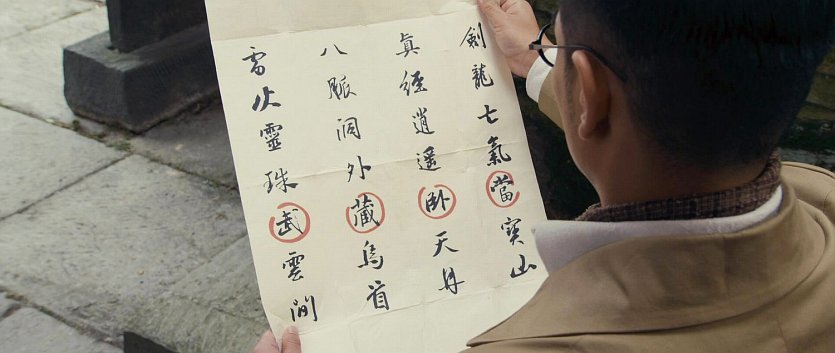 劍龍七氣當寶山
眞經逍遙臥天丹
八脈洞外藏烏首
雷火靈珠武雲間